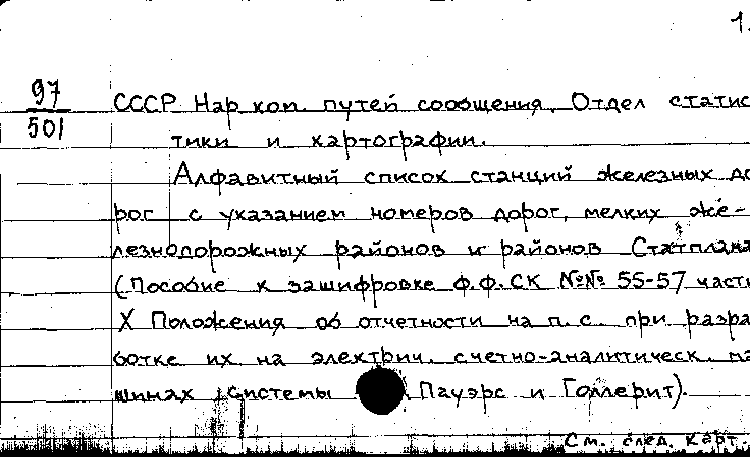 1.
97
501
СССР Нар ком. путей сообщения. Отдел статис
тики и картографии.
Алфавитный список станций железных до
рог с указанием номеров дорог, мелких же-
лезнодорожных районов и районов Статплана
(Пособие к зашифровке ф.ф. СК №№ 55-57 части
X Положения об отчетности на п. с. при разра
ботке их на электрич. счетно-аналитическ. ма
шинах системы Пауэрс и Голлерит).
См. след. карт.